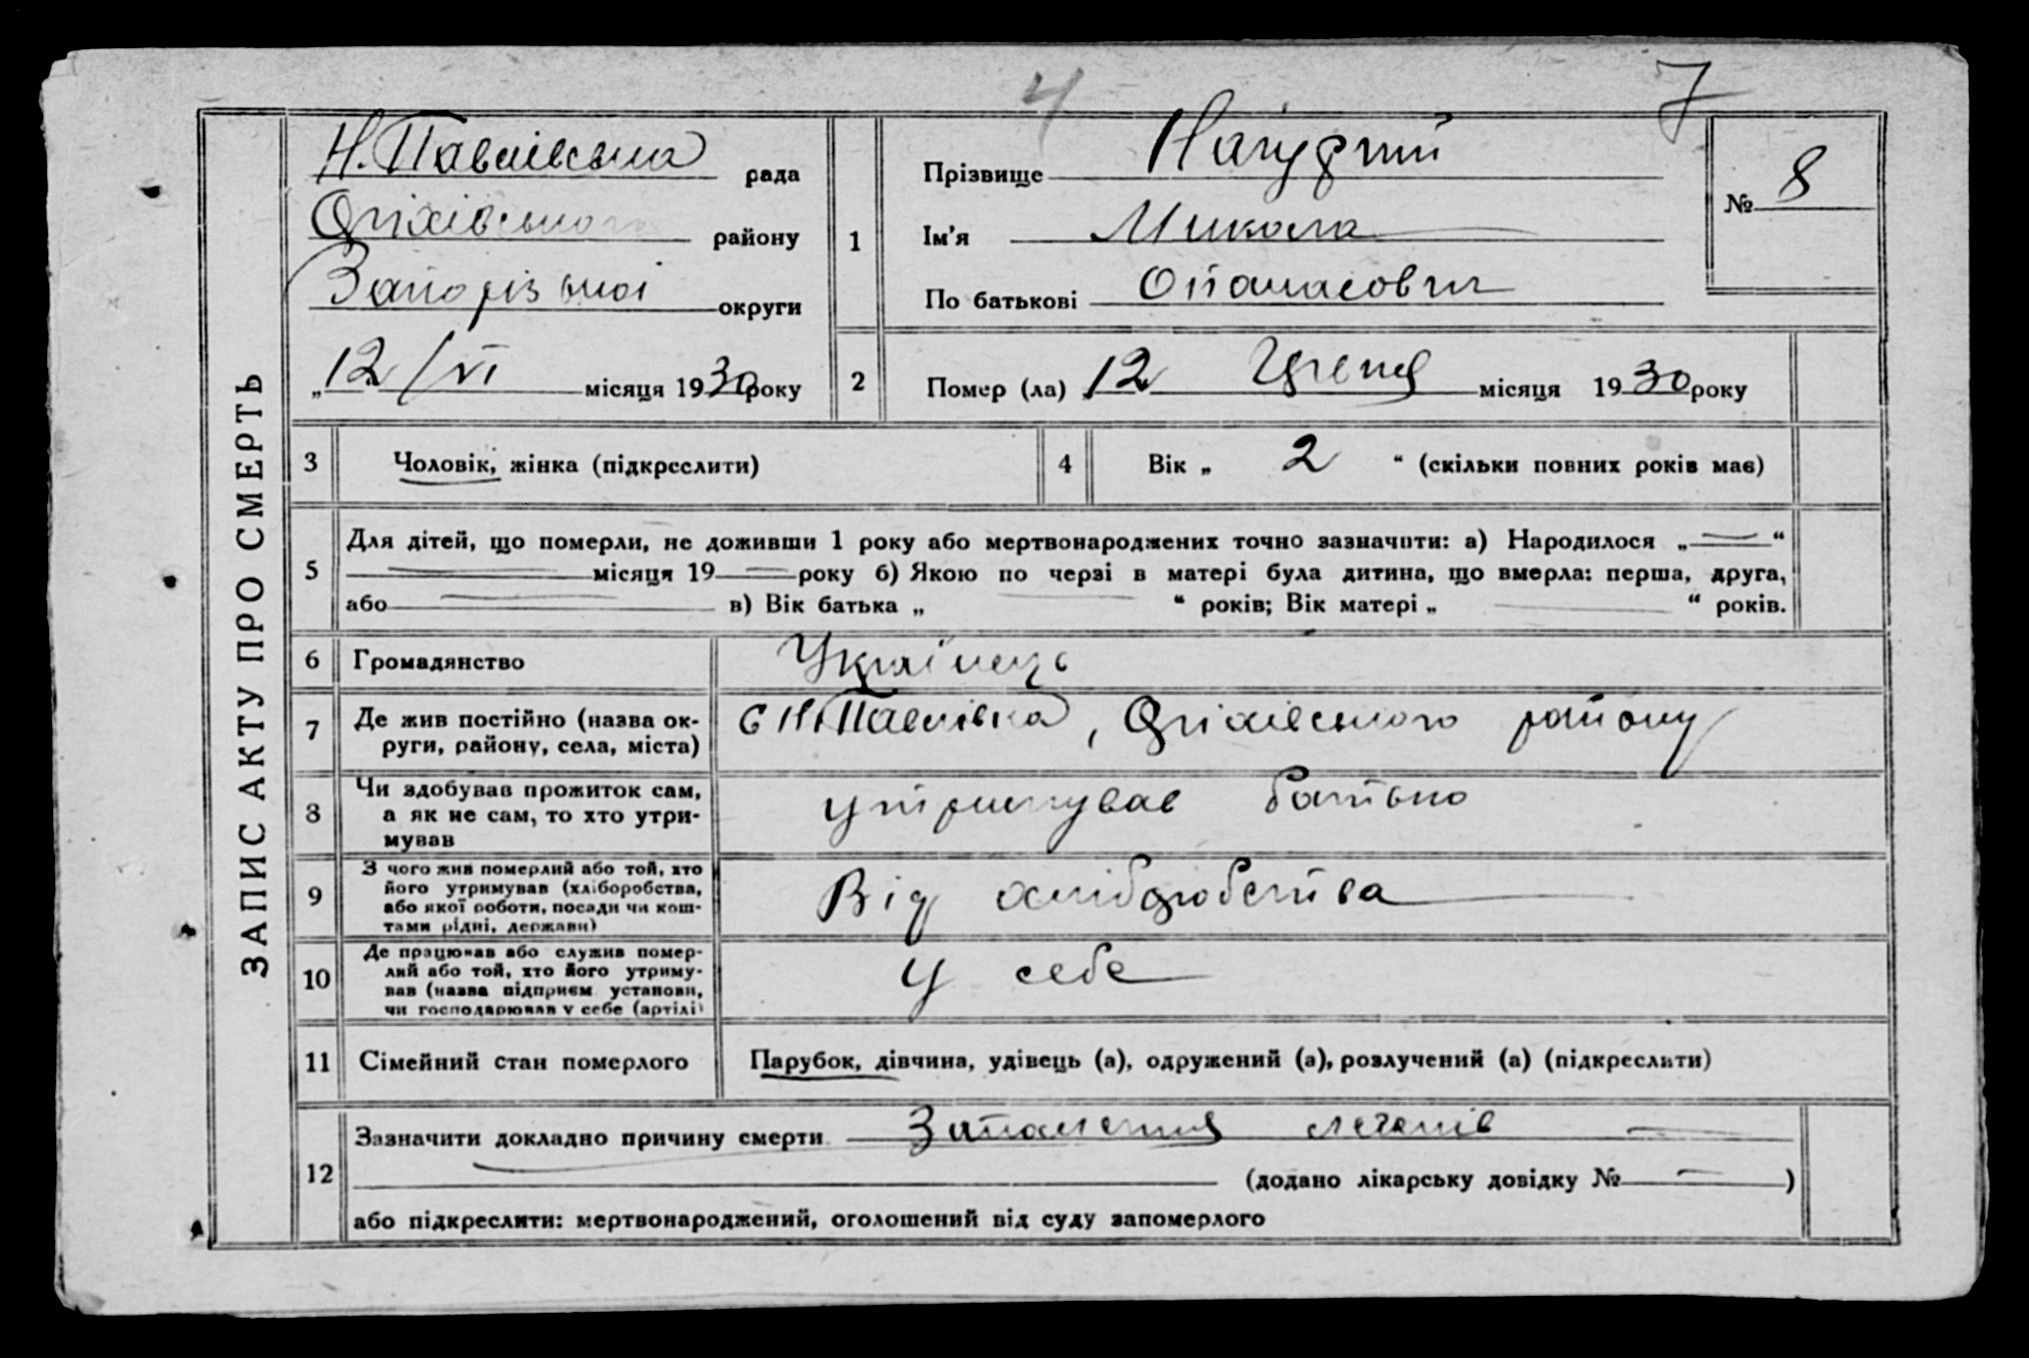 4
7
ЗАПИС АКТУ ПРО СМЕРТЬ
Н. Павлівська рада
Оріхівського району
Запорізької округи
„12/VI місяця 1930 року
1
Прізвище
Ім'я Микола
По батькові Опанасович
№ 8
2
Помер (ла) 12 Червня місяця 1930 року
3
Чоловік, жінка (підкреслити)
4
Вік „ 2 “ (скільки повних років має)
5
Для дітей, що померли, не доживши 1 року або мертвонароджених точно зазначити: а) Народилося „—“
— місяця 19— року б) Якою по черзі в матері була дитина, що вмерла: перша, друга,
або — в) Вік батька „ — “ років; Вік матері „ — “ років.
6
Громадянство
Українець
7
Де жив постійно (назва ок-
руги, району, села, міста)
с Н. Павлівка, Оріхівського району
8
Чи здобував прожиток сам,
а як не сам, то хто утри-
мував
утримував батько
9
З чого жив померлий або той, хто
його утримував (хліборобства,
або якої роботи, посади чи кош-
тами рідні, держави)
Від хліборобства
10
Де працював або служив помер-
лий або той, хто його утриму-
вав (назва підприєм. установи,
чи господарював у себе (артілі)
У себе
11
Сімейний стан померлого
Парубок, дівчина, удівець (а), одружений (а), розлучений (а) (підкреслити)
12
Зазначити докладно причину смерти Запалення легенів —
(додано лікарську довідку № —)
або підкреслити: мертвонароджений, оголошений від суду запомерлого